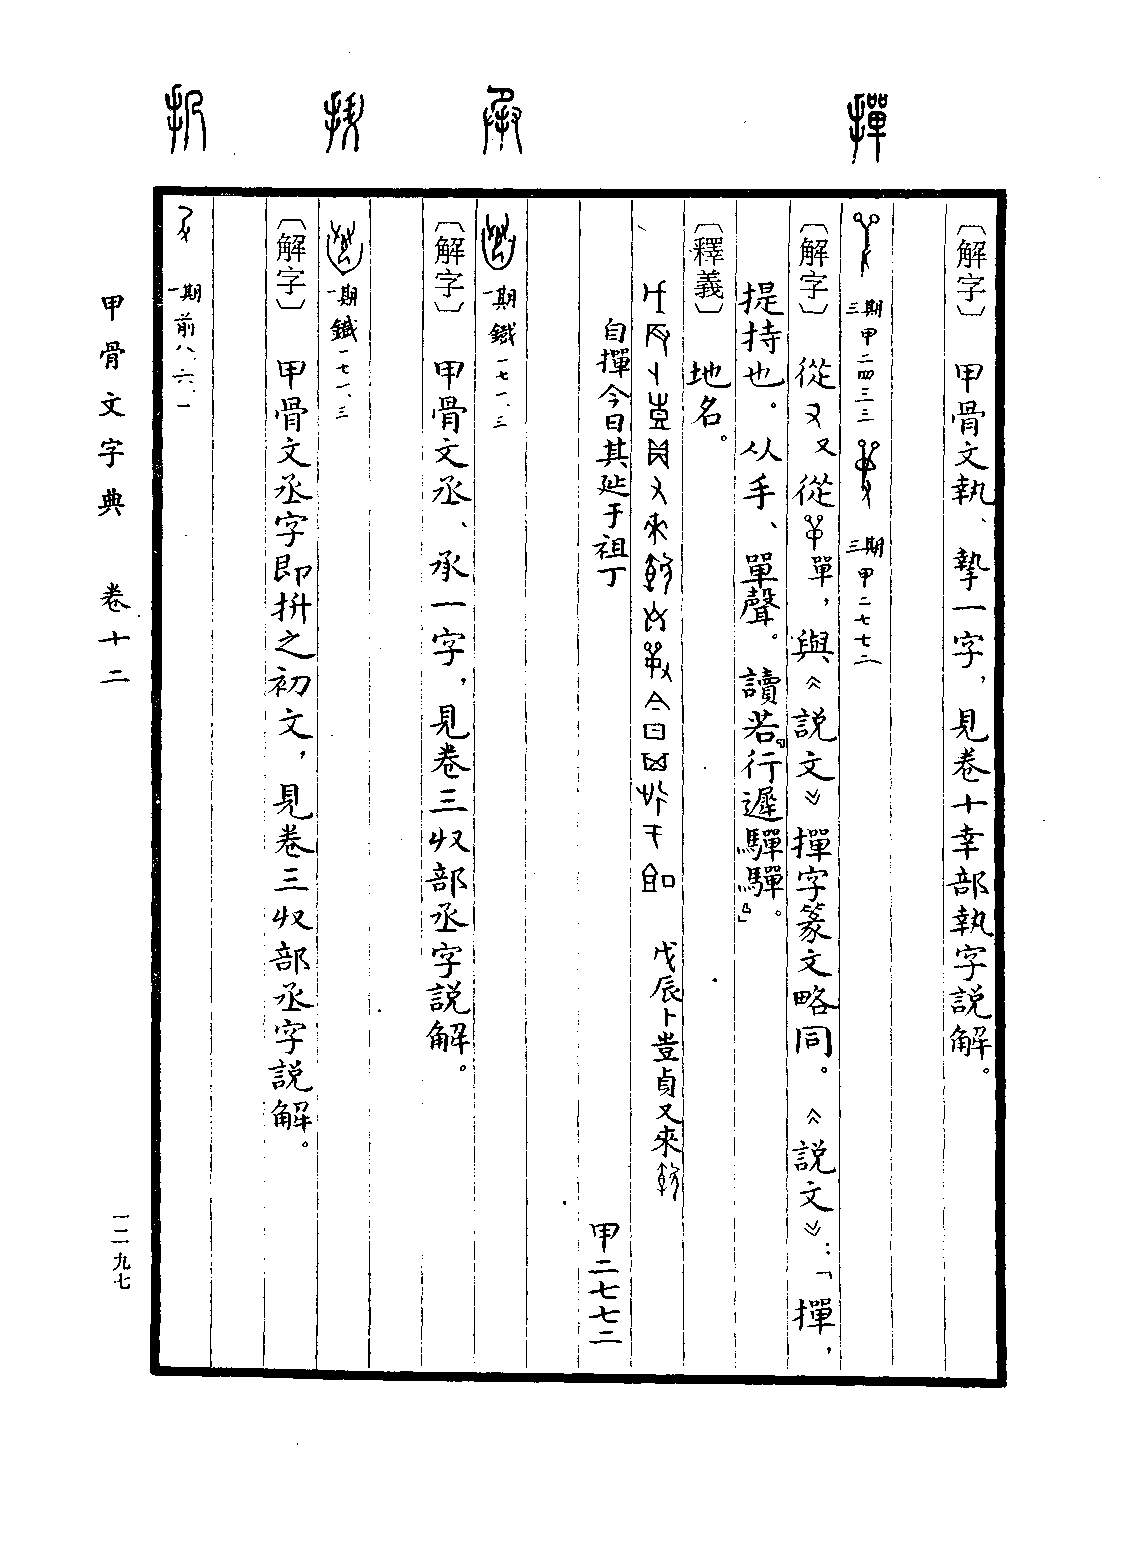 撣
承
抍
抓
〔解字〕 甲骨文執、摯一字，見卷十㚔部執字說解。
三期 甲二四三三 三期 甲二七七二
〔解字〕 從又從單，與《說文》撣字篆文略同。《說文》：「撣，
提持也。从手、單聲。讀若『行遲驒驒。』
〔釋義〕 地名。
戊辰卜壴貞又來
自撣今日其延于祖丁 甲二七七二
一期 鐵一七一、三
〔解字〕 甲骨文丞、承一字，見卷三収部丞字說解。
一期 鐵一七一、三
〔解字〕 甲骨文丞字即抍之初文，見卷三収部丞字說解。
一期 前八、六、一
甲骨文字典 卷十二
一二九七